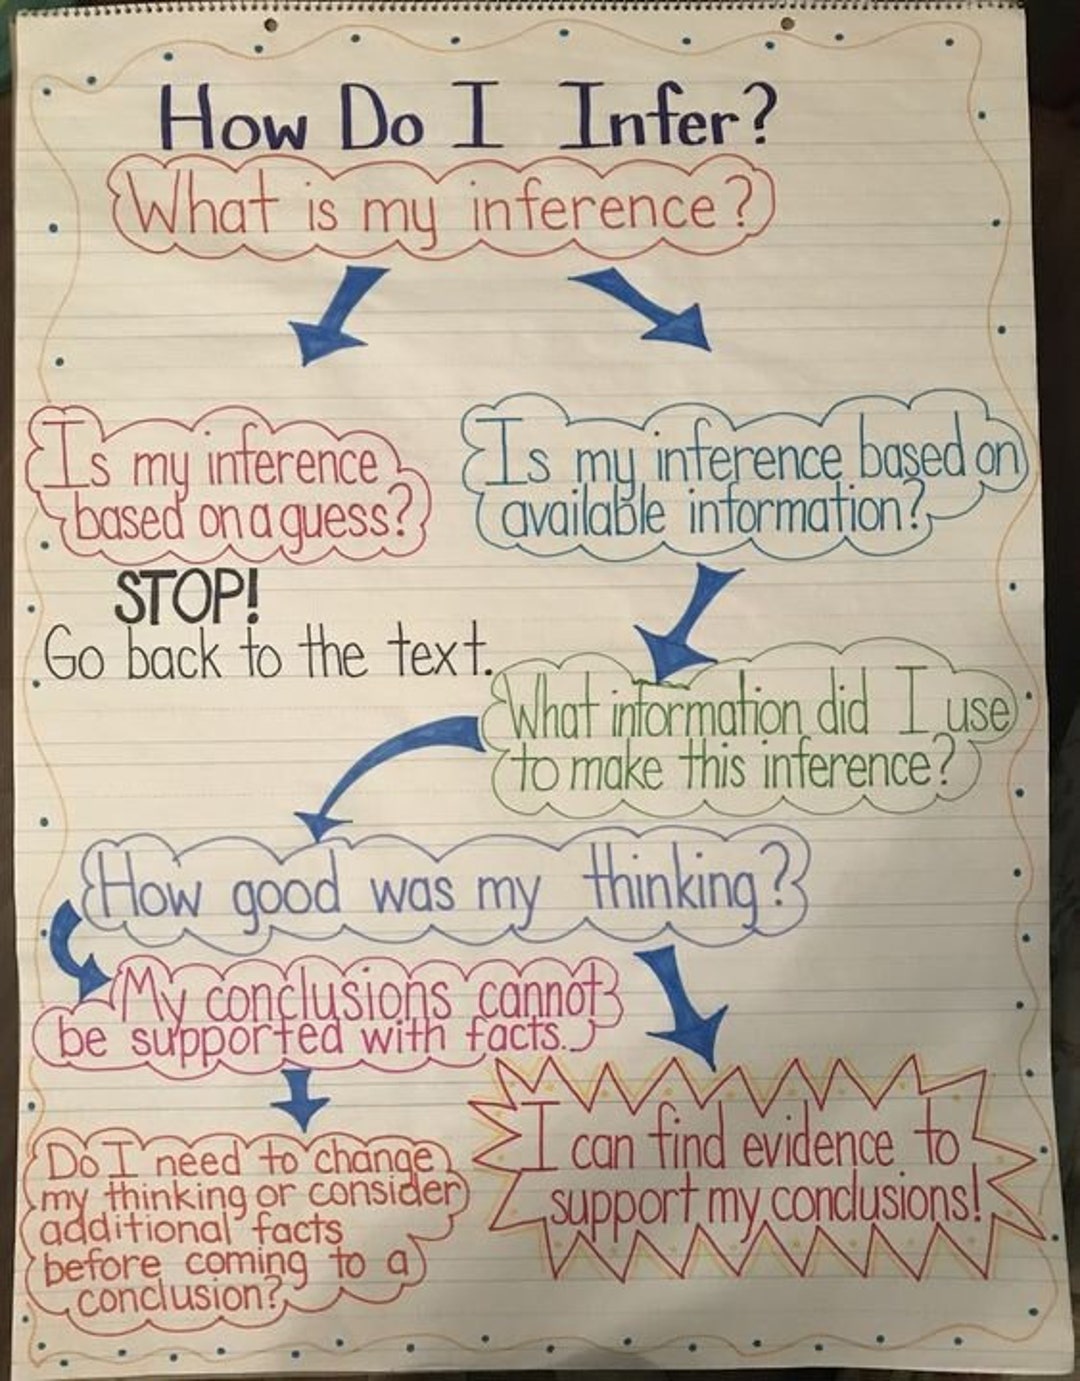 How Do I Infer?
What is my inference?
Is my inference
based on a guess?
STOP!
Go back to the text.
Is my inference based on
available information?
What information did I use
to make this inference?
How good was my thinking?
My conclusions cannot
be supported with facts.
Do I need to change
my thinking or consider
additional facts
before coming to a
conclusion?
I can find evidence to
support my conclusions!